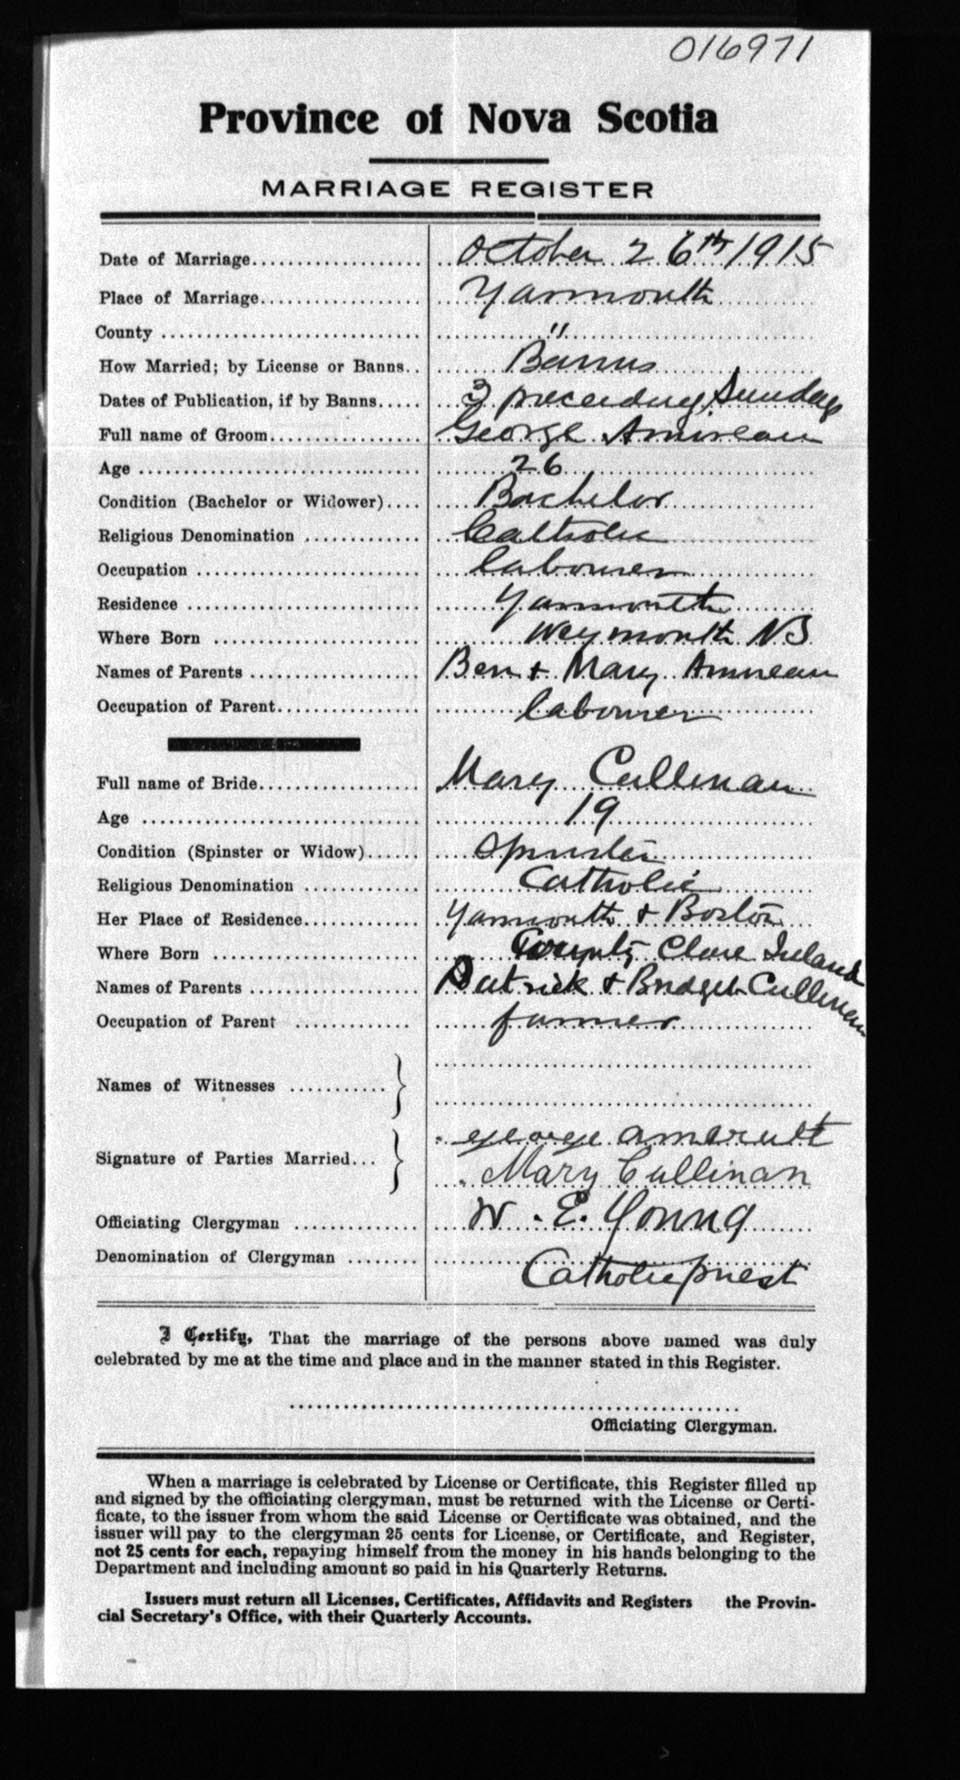 016971
Province of Nova Scotia
MARRIAGE REGISTER
Date of Marriage................... October 26th 1915
Place of Marriage.................. Yarmouth
County ............................ "
How Married; by License or Banns.. Banns
Dates of Publication, if by Banns..... 3 preceeding Sundays
Full name of Groom................. George Amireau
Age ............................... 26
Condition (Bachelor or Widower).... Bachelor
Religious Denomination ............ Catholic
Occupation ........................ labourer
Residence ......................... Yarmouth
Where Born ........................ Weymouth NS
Names of Parents .................. Ben + Mary Amireau
Occupation of Parent................ labourer
Full name of Bride.................. Mary Cullinan
Age ............................... 19
Condition (Spinster or Widow)...... Spinster
Religious Denomination ............ Catholic
Her Place of Residence............. Yarmouth + Boston
Where Born ........................ County Clare Ireland
Names of Parents .................. Patrick + Bridget Cullinan
Occupation of Parent .............. farmer
Names of Witnesses ........... }
Signature of Parties Married... } george amerult
Mary Cullinan
Officiating Clergyman .............. W. E. Young
Denomination of Clergyman ........ Catholic priest
I Certify, That the marriage of the persons above named was duly
celebrated by me at the time and place and in the manner stated in this Register.
Officiating Clergyman.
When a marriage is celebrated by License or Certificate, this Register filled up
and signed by the officiating clergyman, must be returned with the License or Certi-
ficate, to the issuer from whom the said License or Certificate was obtained, and the
issuer will pay to the clergyman 25 cents for License, or Certificate, and Register,
not 25 cents for each, repaying himself from the money in his hands belonging to the
Department and including amount so paid in his Quarterly Returns.
Issuers must return all Licenses, Certificates, Affidavits and Registers the Provin-
cial Secretary's Office, with their Quarterly Accounts.